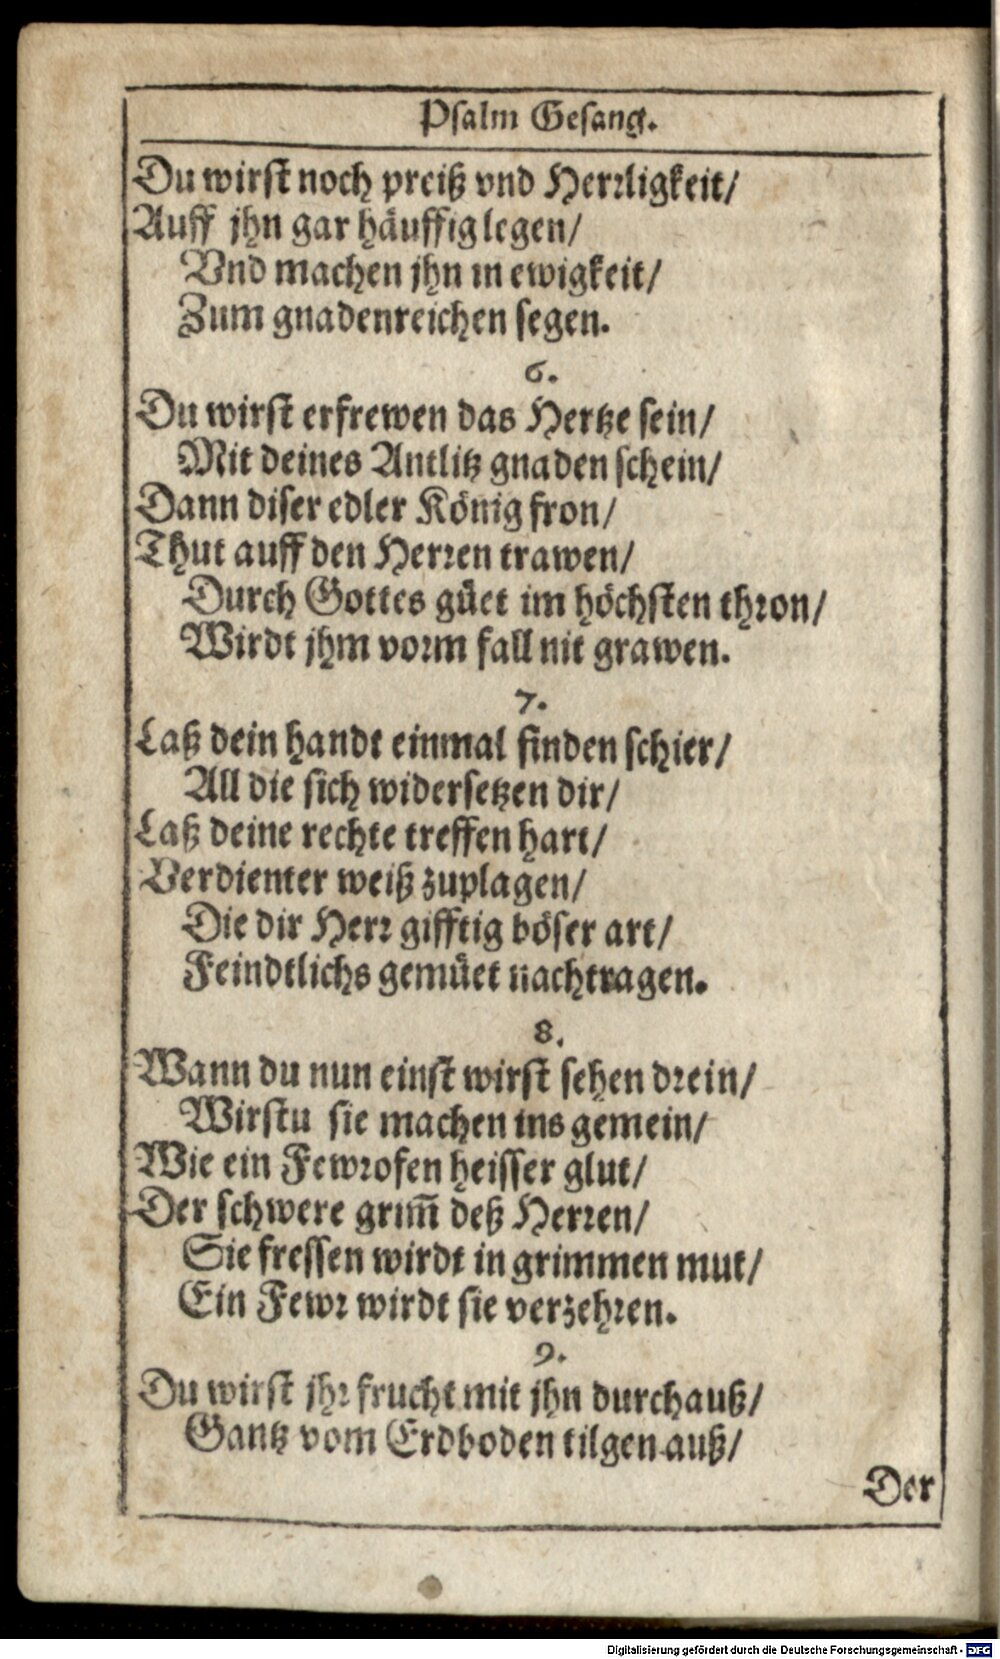 Psalm Gesang.
Du wirst noch preiß vnd Herrligkeit/
Auff jhn gar häuffig legen/
Vnd machen jhn in ewigkeit/
Zum gnadenreichen segen.
6.
Du wirst erfrewen das Hertze sein/
Mit deines Antlitz gnaden schein/
Dann diser edler König fron/
Thut auff den Herren trawen/
Durch Gottes güet im höchsten thron/
Wirdt jhm vorm fall nit grawen.
7.
Laß dein handt einmal finden schier/
All die sich widersetzen dir/
Laß deine rechte treffen hart/
Verdienter weiß zuplagen/
Die dir Herr gifftig böser art/
Feindtlichs gemüet nachtragen.
8.
Wann du nun einst wirst sehen drein/
Wirstu sie machen ins gemein/
Wie ein Fewrofen heisser glut/
Der schwere grim̄ deß Herren/
Sie fressen wirdt in grimmen mut/
Ein Fewr wirdt sie verzehren.
9.
Du wirst jhr frucht mit jhn durchauß/
Gantz vom Erdboden tilgen auß/
Der
Digitalisierung gefördert durch die Deutsche Forschungsgemeinschaft - DFG